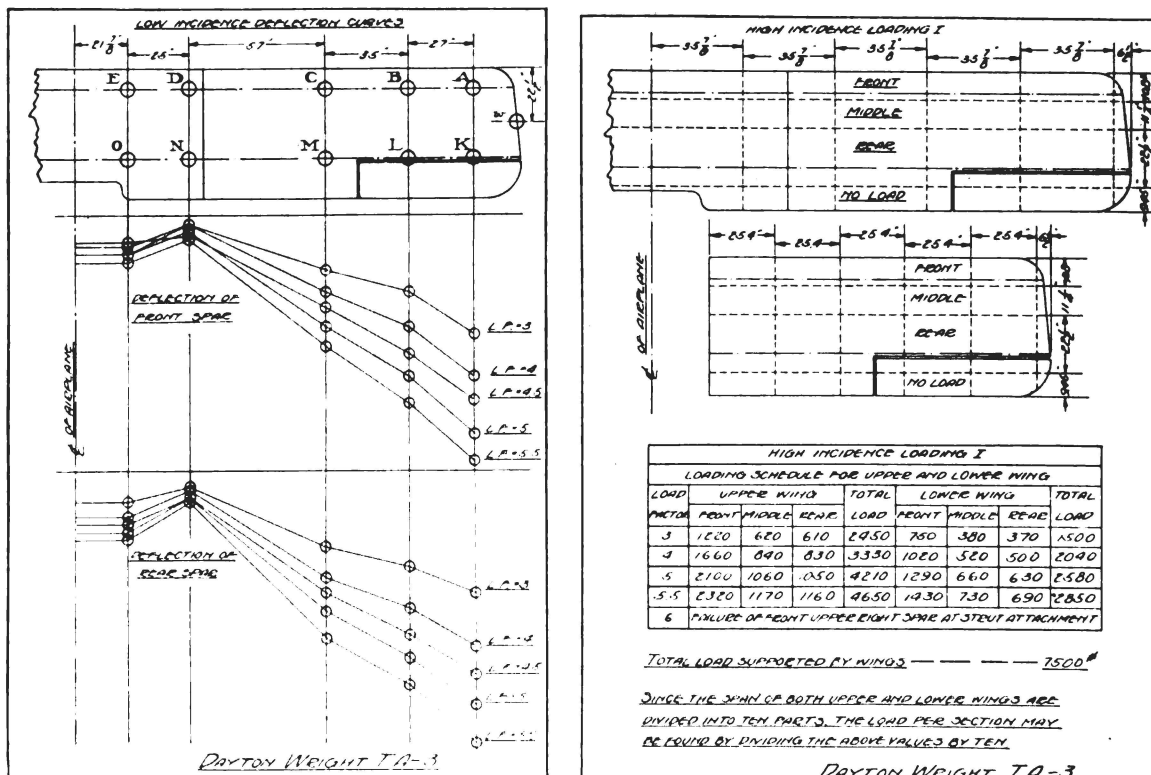 LOW INCIDENCE DEFLECTION CURVES
21 7/8" 25" 57" 35" 27"
E D C B A
22 1/2"
W
O N M L K
DEFLECTION OF
FRONT SPAR
L.F.=3
L.F.=4
L.F.=4.5
L.F.=5
L.F.=5.5
℄ OF AIRPLANE
DEFLECTION OF
REAR SPAR
L.F.=3
L.F.=4
L.F.=4.5
L.F.=5
DAYTON WRIGHT TA-3
HIGH INCIDENCE LOADING I
35 7/8" 35 7/8" 35 7/8" 35 7/8" 35 7/8"
FRONT
MIDDLE
REAR
NO LOAD
25.4" 25.4 25.4" 25.4" 25.4"
FRONT
MIDDLE
REAR
NO LOAD
℄ OF AIRPLANE
HIGH INCIDENCE LOADING I
LOADING SCHEDULE FOR UPPER AND LOWER WING
LOAD FACTOR UPPER WING TOTAL LOAD LOWER WING TOTAL LOAD
FRONT MIDDLE REAR FRONT MIDDLE REAR
3 1220 620 610 2450 750 380 370 1500
4 1660 840 830 3330 1020 520 500 2040
5 2100 1060 1050 4210 1290 660 630 2580
5.5 2320 1170 1160 4650 1430 730 690 2850
6 FAILURE OF FRONT UPPER RIGHT SPAR AT STRUT ATTACHMENT
TOTAL LOAD SUPPORTED BY WINGS — — — 7500#
SINCE THE SPAN OF BOTH UPPER AND LOWER WINGS ARE
DIVIDED INTO TEN PARTS, THE LOAD PER SECTION MAY
BE FOUND BY DIVIDING THE ABOVE VALUES BY TEN
DAYTON WRIGHT TA-3